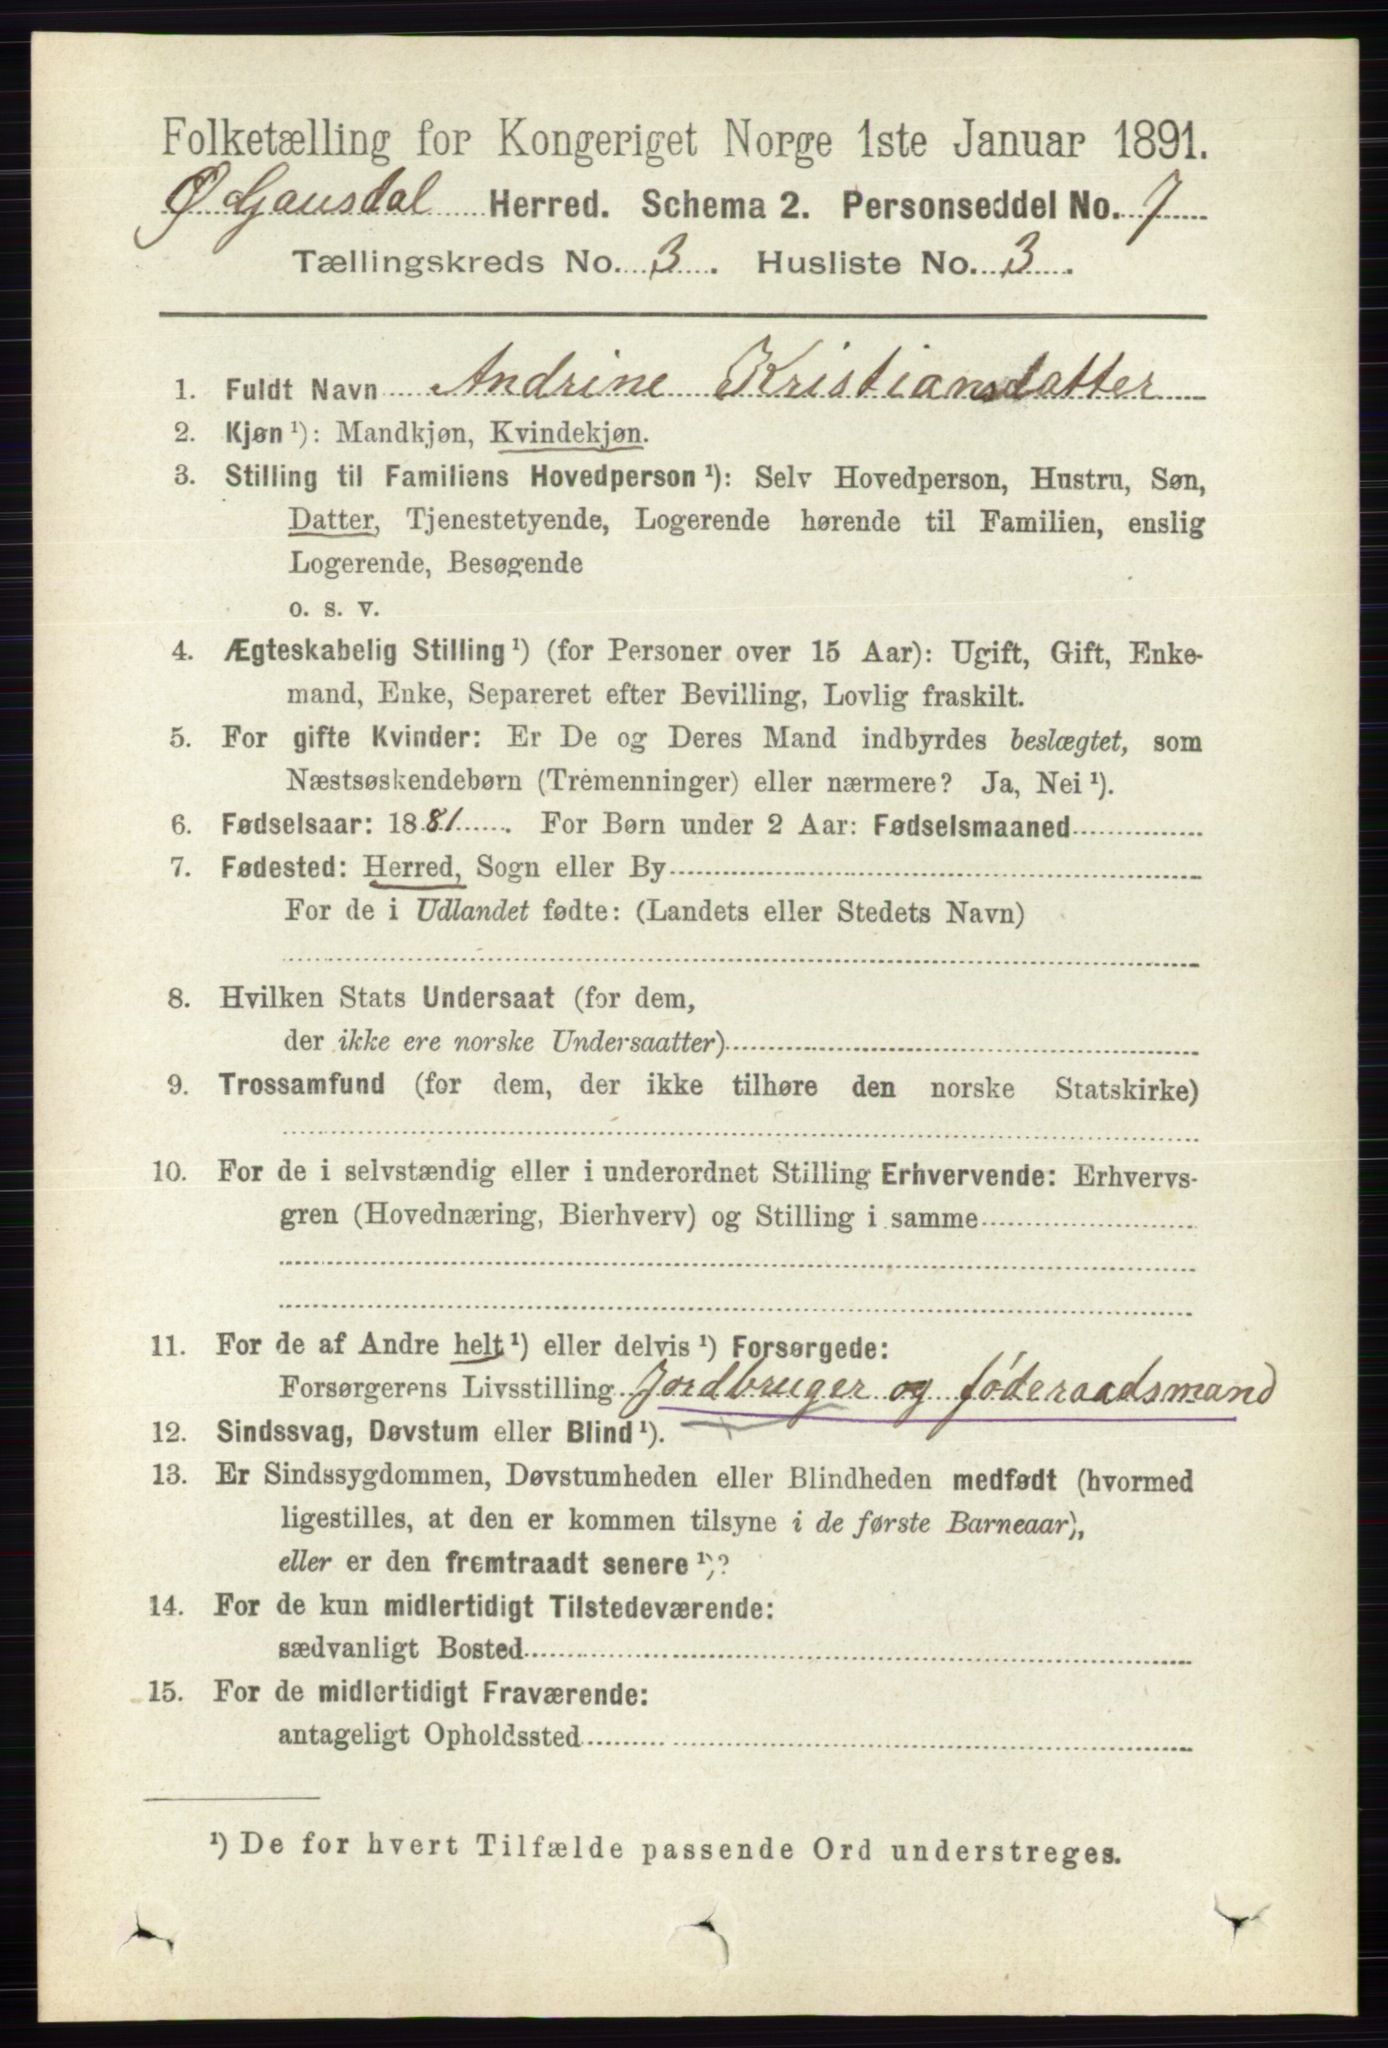 Folketælling for Kongeriget Norge 1ste Januar 1891.
Ø. Gausdal Herred. Schema 2. Personseddel No. 7
Tællingskreds No. 3. Husliste No. 3.
1. Fuldt Navn Andrine Kristiansdatter
2. Kjøn ¹): Mandkjøn, Kvindekjøn.
3. Stilling til Familiens Hovedperson ¹): Selv Hovedperson, Hustru, Søn,
Datter, Tjenestetyende, Logerende hørende til Familien, enslig
Logerende, Besøgende
o. s. v.
4. Ægteskabelig Stilling ¹) (for Personer over 15 Aar): Ugift, Gift, Enke-
mand, Enke, Separeret efter Bevilling, Lovlig fraskilt.
5. For gifte Kvinder: Er De og Deres Mand indbyrdes beslægtet, som
Næstsøskendebørn (Tremenninger) eller nærmere? Ja, Nei ¹).
6. Fødselsaar: 1881. For Børn under 2 Aar: Fødselsmaaned
7. Fødested: Herred, Sogn eller By
For de i Udlandet fødte: (Landets eller Stedets Navn)
8. Hvilken Stats Undersaat (for dem,
der ikke ere norske Undersaatter)
9. Trossamfund (for dem, der ikke tilhøre den norske Statskirke)
10. For de i selvstændig eller i underordnet Stilling Erhvervende: Erhvervs-
gren (Hovednæring, Bierhverv) og Stilling i samme
11. For de af Andre helt ¹) eller delvis ¹) Forsørgede:
Forsørgerens Livsstilling Jordbruger og føderaadsmand
12. Sindssvag, Døvstum eller Blind ¹).
13. Er Sindssygdommen, Døvstumheden eller Blindheden medfødt (hvormed
ligestilles, at den er kommen tilsyne i de første Barneaar),
eller er den fremtraadt senere ¹)?
14. For de kun midlertidigt Tilstedeværende:
sædvanligt Bosted
15. For de midlertidigt Fraværende:
antageligt Opholdssted
¹) De for hvert Tilfælde passende Ord understreges.